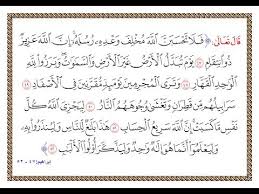 قَالَ تَعَالَى: ﴿فَلَا تَحْسَبَنَّ اللَّهَ مُخْلِفَ وَعْدِهِ رُسُلَهُ إِنَّ اللَّهَ عَزِيزٌ
ذُو انْتِقَامٍ ٤٧ يَوْمَ تُبَدَّلُ الْأَرْضُ غَيْرَ الْأَرْضِ وَالسَّمَاوَاتُ وَبَرَزُوا لِلَّهِ
الْوَاحِدِ الْقَهَّارِ ٤٨ وَتَرَى الْمُجْرِمِينَ يَوْمَئِذٍ مُقَرَّنِينَ فِي الْأَصْفَادِ ٤٩
سَرَابِيلُهُمْ مِنْ قَطِرَانٍ وَتَغْشَى وُجُوهَهُمُ النَّارُ ٥٠ لِيَجْزِيَ اللَّهُ كُلَّ
نَفْسٍ مَا كَسَبَتْ إِنَّ اللَّهَ سَرِيعُ الْحِسَابِ ٥١ هَذَا بَلَاغٌ لِلنَّاسِ وَلِيُنْذَرُوا بِهِ
وَلِيَعْلَمُوا أَنَّمَا هُوَ إِلَهٌ وَاحِدٌ وَلِيَذَّكَّرَ أُولُو الْأَلْبَابِ﴾
إبراهيم: ٤٧ - ٥٢